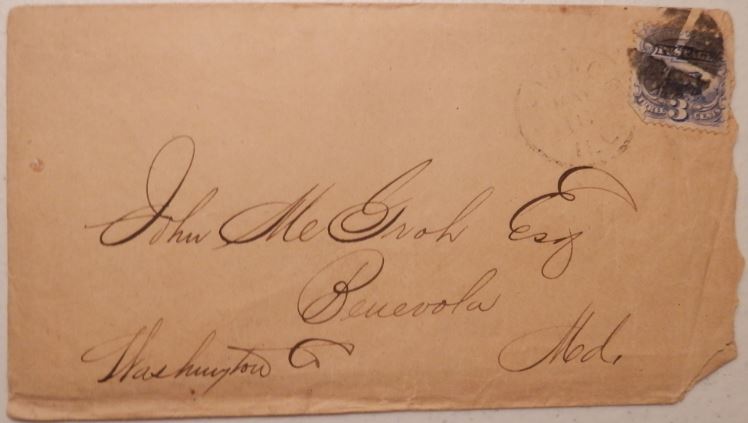 POSTAGE
THREE 3 CENTS
John McGroh Esq
Benevola
Washington Co Md.